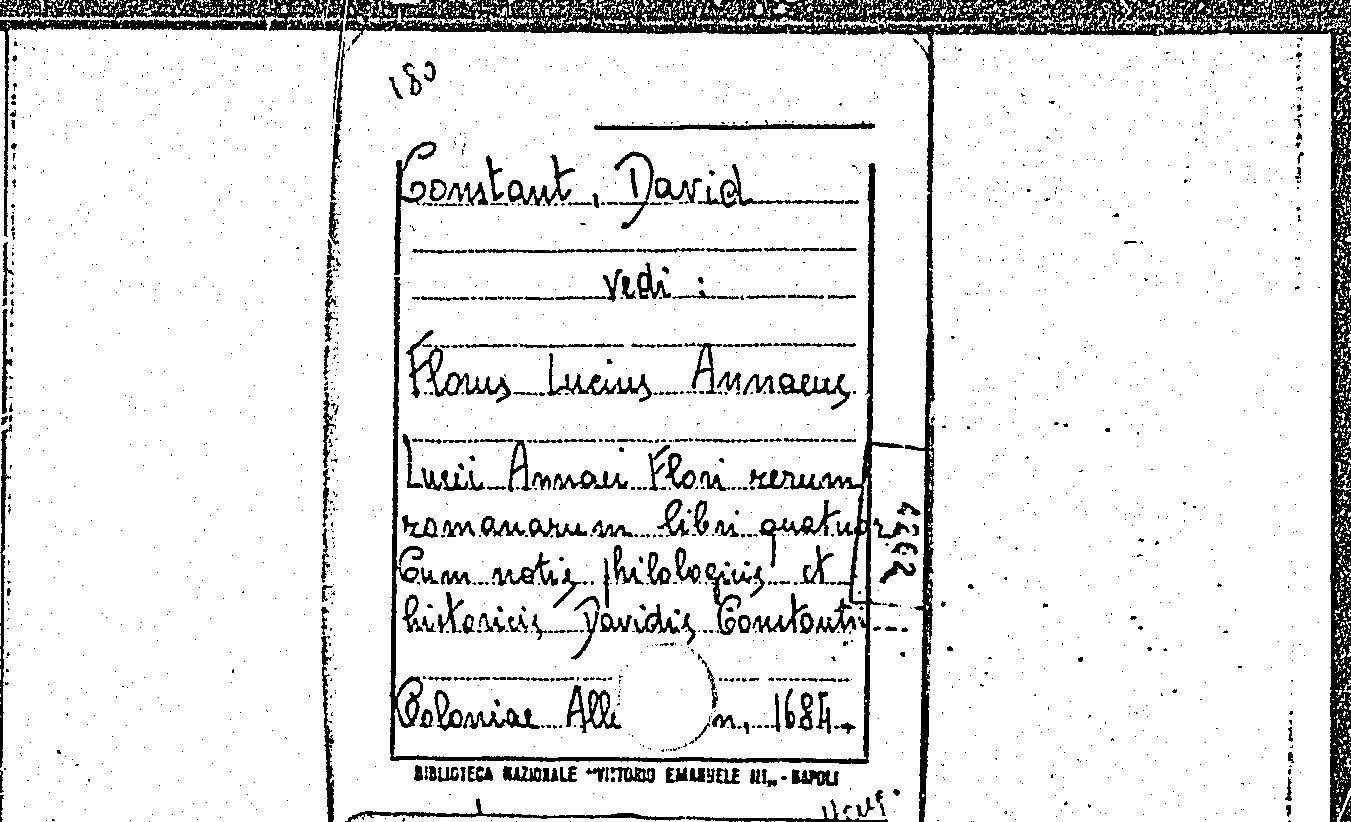 180
Constant, David
vedi :
Florus Lucius Annaeus
Lucii Annaei Flori rerum
romanarum libri quatuor.
Cum notis philologicis et
historicis Davidis Constantii...
Coloniae Alle n, 1684.
BIBLIOTECA NAZIONALE "VITTORIO EMANUELE III„ - NAPOLI